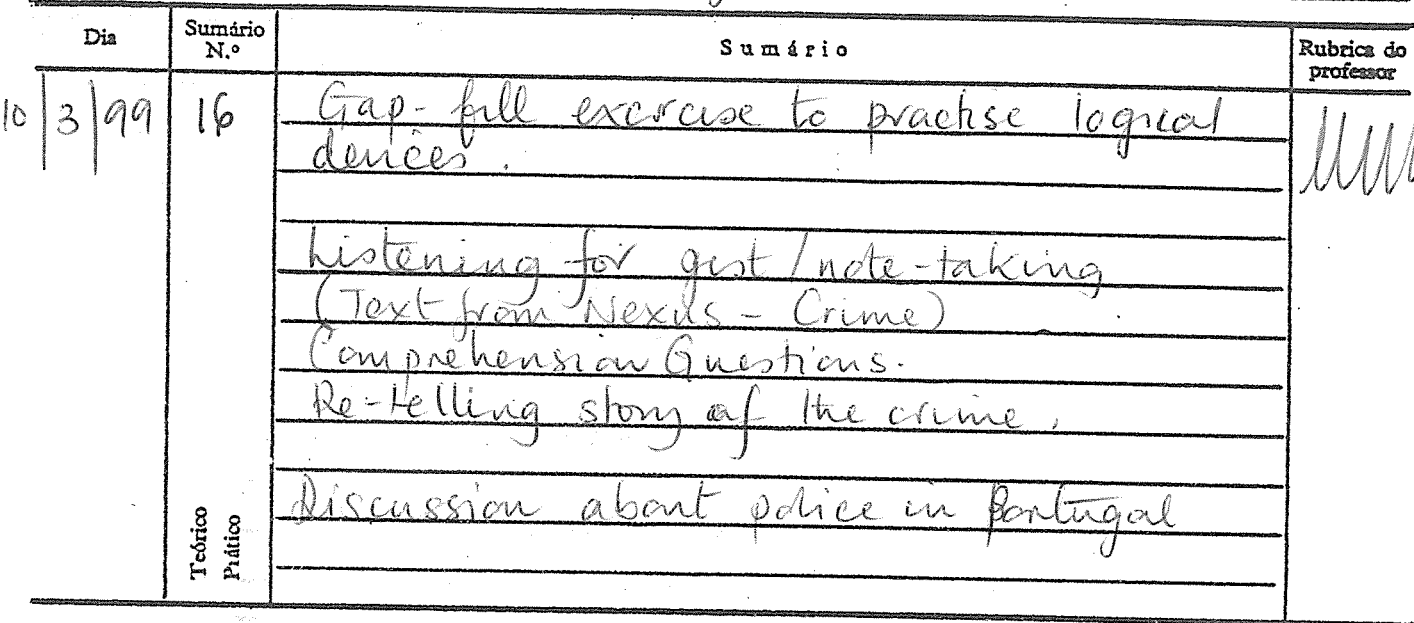 Dia
Sumário N.º
Sumário
Rubrica do professor
10/3/99
16
Gap-fill exercise to practise logical
devices.
Listening for gist / note-taking
(Text from Nexus - Crime)
Comprehension Questions.
Re-telling story of the crime.
Discussion about police in Portugal
Teórico
Prático